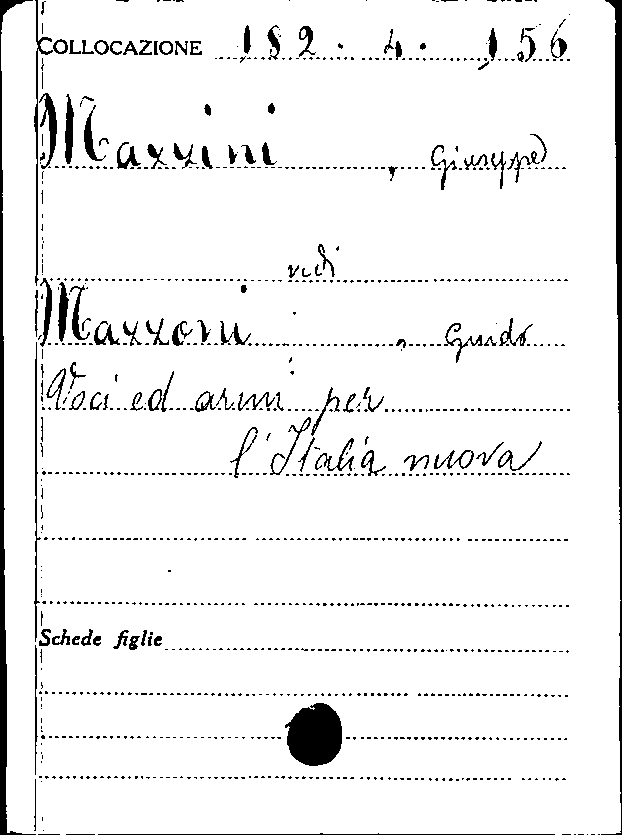 COLLOCAZIONE 182. 4. 156
Mazzini, Giuseppe
vedi
Mazzoni, Guido
Voci ed armi per
l'Italia nuova
Schede figlie